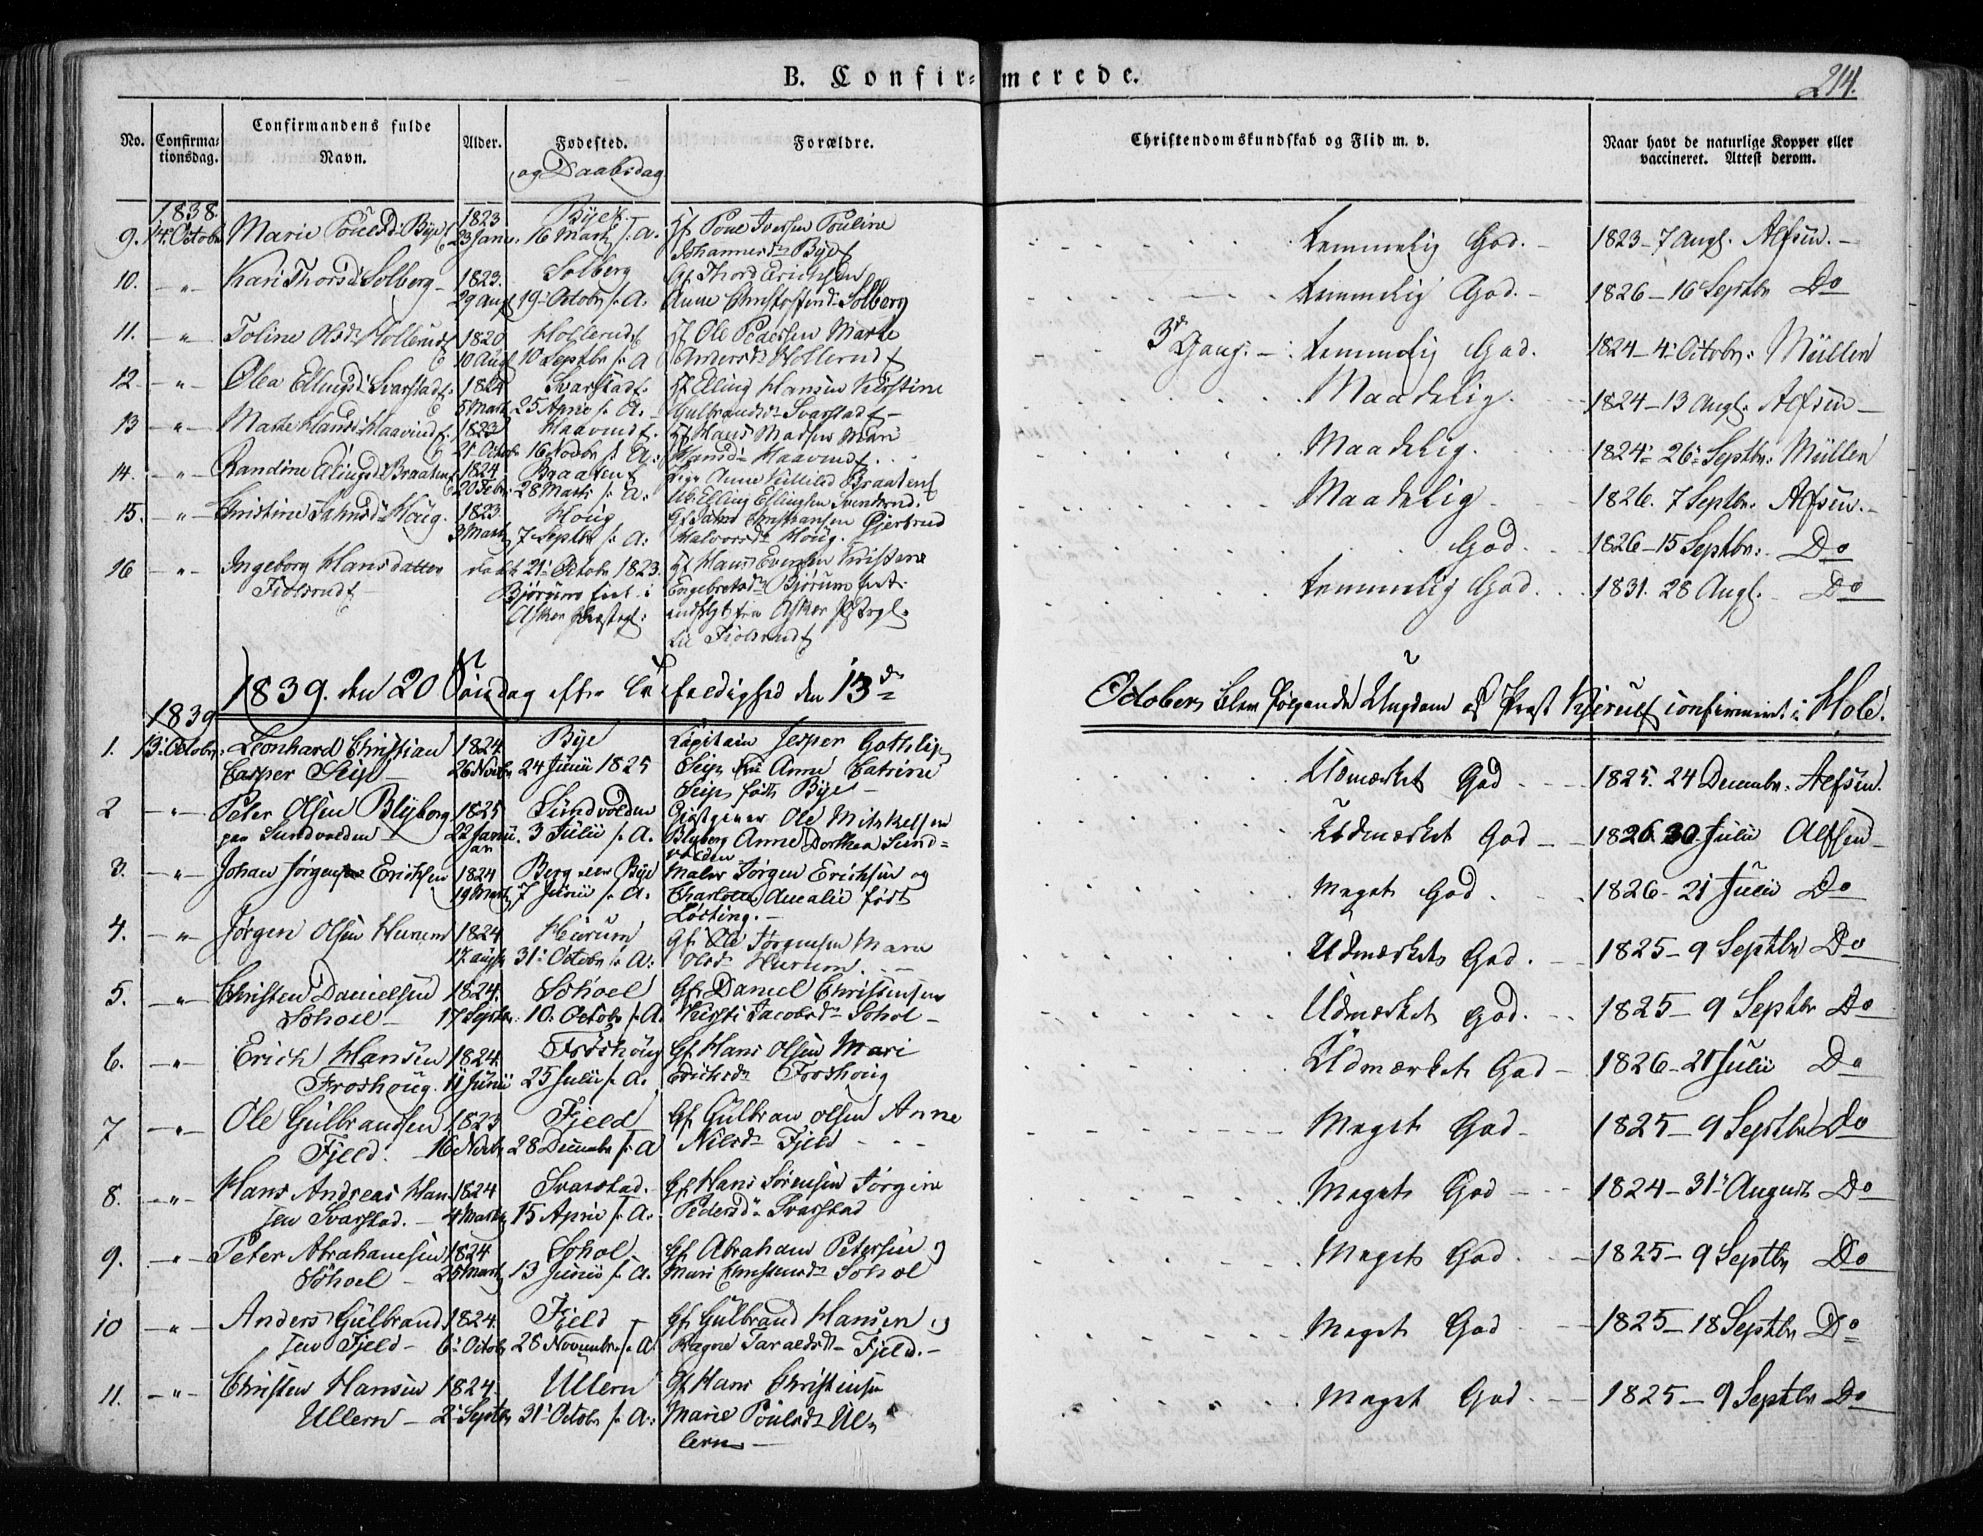 B. Confir= merede.
214.
No.
Confirma-
tionsdag.
Confirmandens fulde
Navn.
Alder.
Fødested.
og Daabsdag
Forældre.
Christendomskundskab og Flid m. v.
Naar havt de naturlige Kopper eller
vaccineret. Attest derom.
1838.
9. 14. Octobr Marie Pouelsd: Bye 1823 23 Janr. Bye 16 Marts s. A. Gf Poul Iversen Pouline
Johannesd. Bye
temmelig God. - 1823 - 7 Augt. Alfsen. -
10. - " - Kari Thorsd: Solberg - 1823. 29 Augt Solberg 19 Octobr s. A. Gf. Thord Erichsen
Anne Christofersd. Solberg
temmelig God. - 1826 - 16 Septbr Do
11. - " - Toline Olsd: Hollerud 1820 10 Augt Hollerud 10 Septbr s. A. Gf Ole Pedersen Marte
Andersd. Hollerud
3de Gang. - temmelig God. 1824 - 4. Octobr. Müller
12. - " - Olea Ellingsd: Svarstad. 1824 5 Marts Svarstad. 25 April s. A. - Gf Elling Hansen Kirstine
Gulbrandsd. Svarstad -
Maadelig. 1824 - 13 Augt. Alfsen -
13 - " - Marte Hansd: Haavind. 1823 21 Octobr Haavind. 16 Novbr s. A. Gf Hans Madsen Mari
Hansd. Haavind.
Maadelig. 1824 - 26 Septbr. Müller
14. - " - Randine Ellingsd: Braaten 1824 20 Febr. Braaten 28 Marts s. A. Pige Anne Braaten
Elling Ellingsen
Maadelig 1826. 7 Septbr. Alfsen. -
15. - " - Christine Houg. 1823. 3 Marts Houg 7 Septbr s. A. Gf Christiansen Gjertrud
Halvorsd. Houg.
God. 1826 - 15 Septbr. Do
16 - " - Ingeborg Hansdatter
Fiolsrud -
21 Octobr 1823.
Bjørum i
Asker Præstegl.
Gf Hans Evensen Kirstine
Engebretsd. Bjørum
indflyt fra Asker Præstegl.
til Fiolsrud
temmelig God. 1831. 28 Augt. Do
1839. den 20 Søndag efter Trefoldighed den 13de Octobers blev følgende Ungdom af Præst Kjerulf confirmeret i Hole.
1839
1. 13 Octobr. Leonhard Christian
Casper Seip -
1824 26 Novbr Bye 24 Junii 1825 Capitain Jesper Gothilf
Seip Anne Catrine
Seip født Bye -
Udmærket God. 1825. 24 Decembr. Alfsen.
2 - " - Peter Olsen Blyberg
paa Sundvolden -
1825 22 Januar Sundvolden 3 Julii s. A. Gjestgiver Ole Mikkelsen
Blyberg Anne Dorthea Sund=
volden
Udmærket God - 1826. 30 Julii Alfsen -
3. - " - Johan Jørgen Erichsen 1824 19 Marts Berg Bye 7 Junii s. A. Maler Jørgen Erichsen og
Charlotte Amalie født
Løsting. -
Meget God. 1826 - 21 Julii Do
4. - " - Jørgen Olsen Hurum 1824 17 Augst Hurum 31 Octobr s. A. Gf. Ole Jørgensen Mari
Olsd. Hurum. -
Udmærkets God. - 1825 - 9 Septbr Do
5. - " - Christen Danielsen
Sohoel -
1824. 17 Septbr. Sohoel 10. Octobr s. A. Gf. Daniel Christensen
Kirsti Jacobsd. Sohol -
Udmærket God. - 1825 - 9 Septbr Do
6. - " - Erich Hansen
Froshoug.
1824. 11 Junii Froshoug 25 Julii s. A. Gf. Hans Olsen Mari
Erichsd. Froshoug
Udmærkets God - 1826 - 21 Julii Do
7 - " - Ole Gulbrandsen
Fjeld.
1823 16 Novbr Fjeld 28 Decembr s. A. Gf. Gulbran Olsen Anne
Nilsd. Fjeld -
Megets God - 1825 - 9 Septbr Do
8. - " - Hans Andreas Han-
sen Svarstad. -
1824 4 Marts Svarstad. 15 April s. A. Gf. Hans Sørensen Jørgine
Pedersd. Svarstad
Megets God - 1824 - 31 Augusts Do
9. - " - Peter Abrahamsen
Sohoel -
1824 25 Marts Sohol 13 Junii s. A. Gf. Abraham Petersen og
Mari Christensd. Sohol
Megets God. - 1825 - 9 Septbr Do
10 - " - Anders Gulbrand-
sen Fjeld -
1824 6. Octobr Fjeld 28 Novembr s. A. Gf. Gulbrand Hansen og
Ragne Taraldsd. Fjeld. -
Meget God 1825 - 18 Septbr Do
11. - " - Christen Hansen
Ullern -
1824. 2. Septbr Ullern 31 Octobr s. A. Gf. Hans Christensen
Marie Poulsd. Ul=
lern -
Meget God. 1825 - 9 Septbr Do